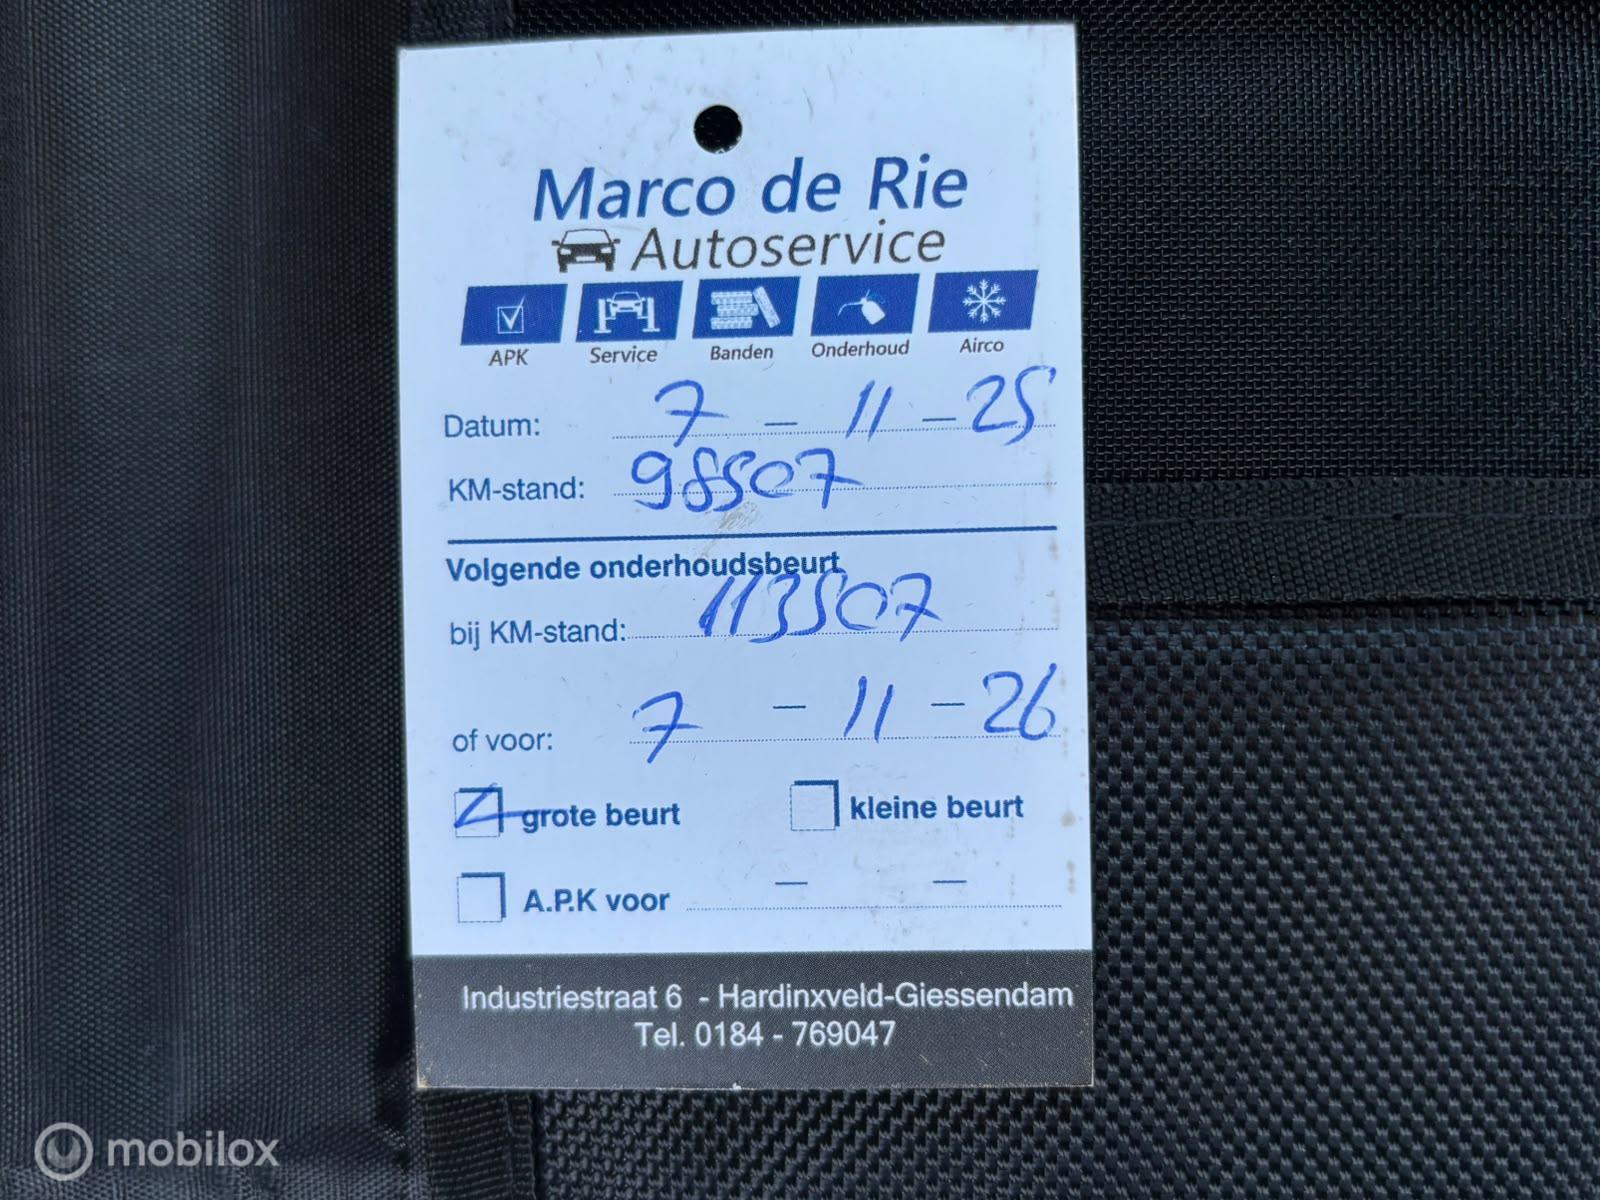 Marco de Rie
Autoservice
APK Service Banden Onderhoud Airco
Datum: 7 - 11 - 25
KM-stand: 98507
Volgende onderhoudsbeurt
bij KM-stand: 113507
of voor: 7 - 11 - 26
grote beurt kleine beurt
A.P.K voor - -
Industriestraat 6 - Hardinxveld-Giessendam
Tel. 0184 - 769047
mobilox